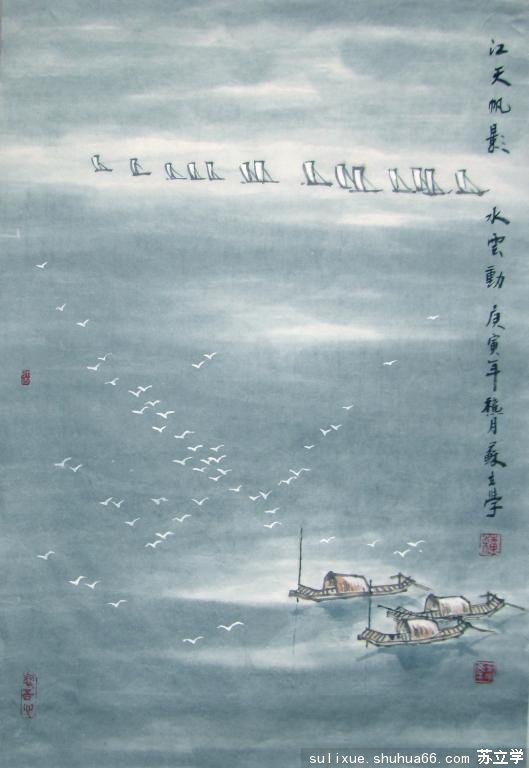 江天帆影 水雲動 庚寅年穐月蘇立學
sulixue.shuhua66.com 苏立学